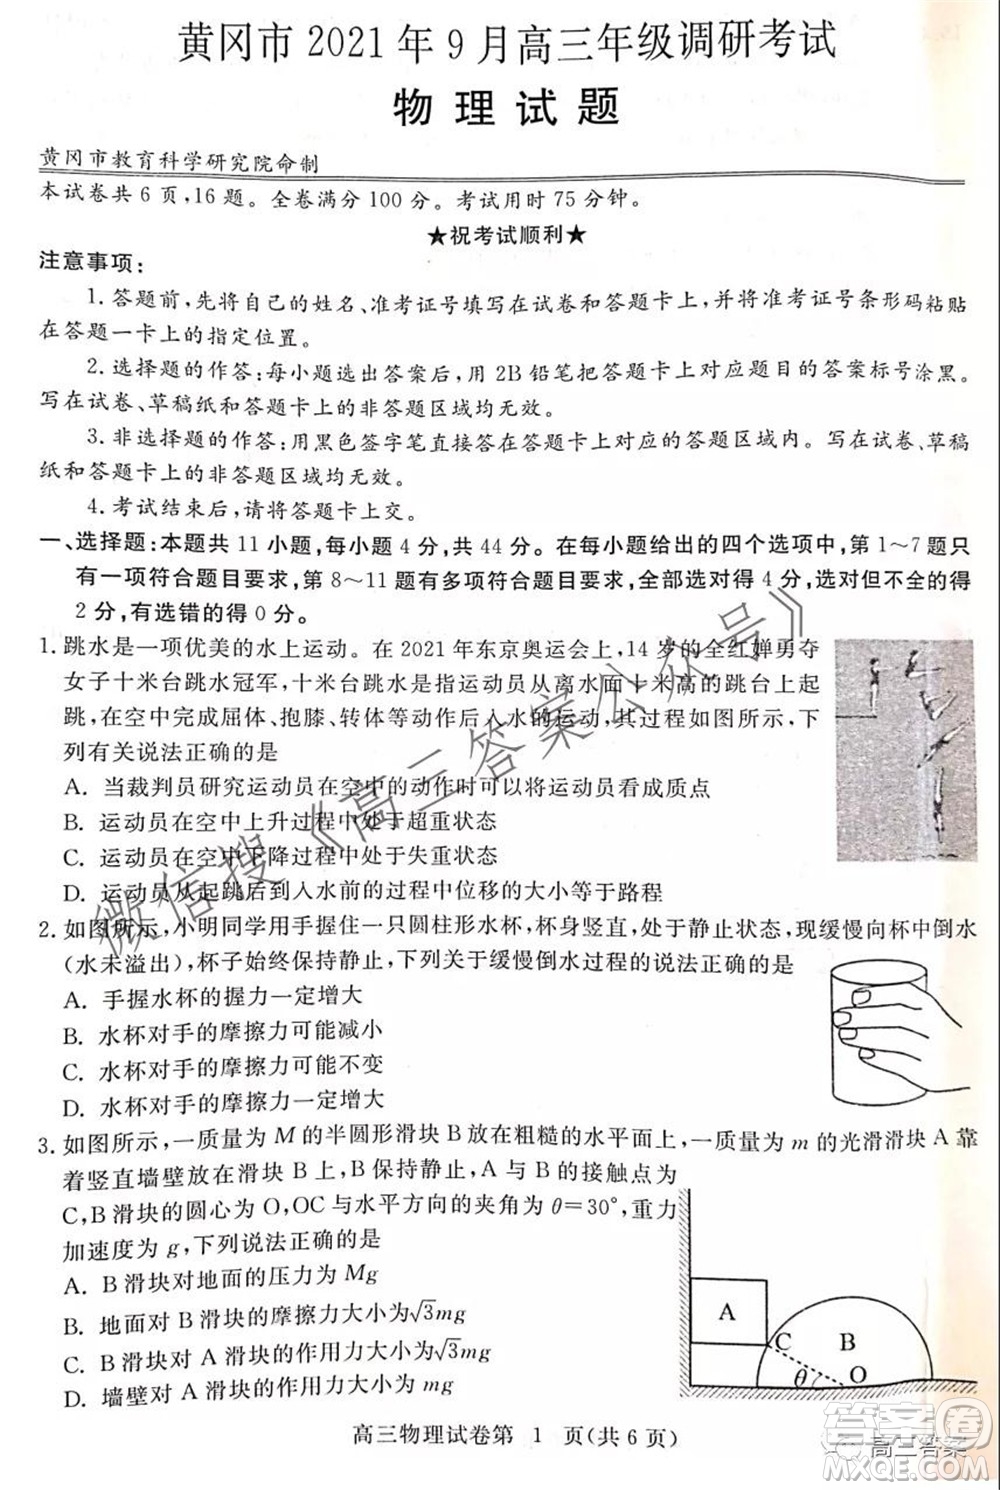 黄冈市2021年9月高三年级调研考试
物理试题
黄冈市教育科学研究院命制
本试卷共6页,16题。全卷满分100分。考试用时75分钟。
★祝考试顺利★
注意事项:
1.答题前,先将自己的姓名、准考证号填写在试卷和答题卡上,并将准考证号条形码粘贴
在答题一卡上的指定位置。
2.选择题的作答:每小题选出答案后,用2B铅笔把答题卡上对应题目的答案标号涂黑。
写在试卷、草稿纸和答题卡上的非答题区域均无效。
3.非选择题的作答:用黑色签字笔直接答在答题卡上对应的答题区域内。写在试卷、草稿
纸和答题卡上的非答题区域均无效。
4.考试结束后,请将答题卡上交。
一、选择题:本题共11小题,每小题4分,共44分。在每小题给出的四个选项中,第1~7题只
有一项符合题目要求,第8~11题有多项符合题目要求,全部选对得4分,选对但不全的得
2分,有选错的得0分。
1.跳水是一项优美的水上运动。在2021年东京奥运会上,14岁的全红婵勇夺
女子十米台跳水冠军,十米台跳水是指运动员从离水面十米高的跳台上起
跳,在空中完成屈体、抱膝、转体等动作后入水的运动,其过程如图所示,下
列有关说法正确的是
A. 当裁判员研究运动员在空中的动作时可以将运动员看成质点
B. 运动员在空中上升过程中处于超重状态
C. 运动员在空中下降过程中处于失重状态
D. 运动员从起跳后到入水前的过程中位移的大小等于路程
2.如图所示,小明同学用手握住一只圆柱形水杯,杯身竖直,处于静止状态,现缓慢向杯中倒水
(水未溢出),杯子始终保持静止,下列关于缓慢倒水过程的说法正确的是
A. 手握水杯的握力一定增大
B. 水杯对手的摩擦力可能减小
C. 水杯对手的摩擦力可能不变
D. 水杯对手的摩擦力一定增大
3.如图所示,一质量为M的半圆形滑块B放在粗糙的水平面上,一质量为m的光滑滑块A靠
着竖直墙壁放在滑块B上,B保持静止,A与B的接触点为
C,B滑块的圆心为O,OC与水平方向的夹角为θ=30°,重力
加速度为g,下列说法正确的是
A. B滑块对地面的压力为Mg
B. 地面对B滑块的摩擦力大小为√3mg
C. B滑块对A滑块的作用力大小为√3mg
D. 墙壁对A滑块的作用力大小为mg
A
C
B
θ
O
高三物理试卷第 1 页(共6页)
微信搜《高三答案公众号》
答案圈
高三答案
MXQE.COM